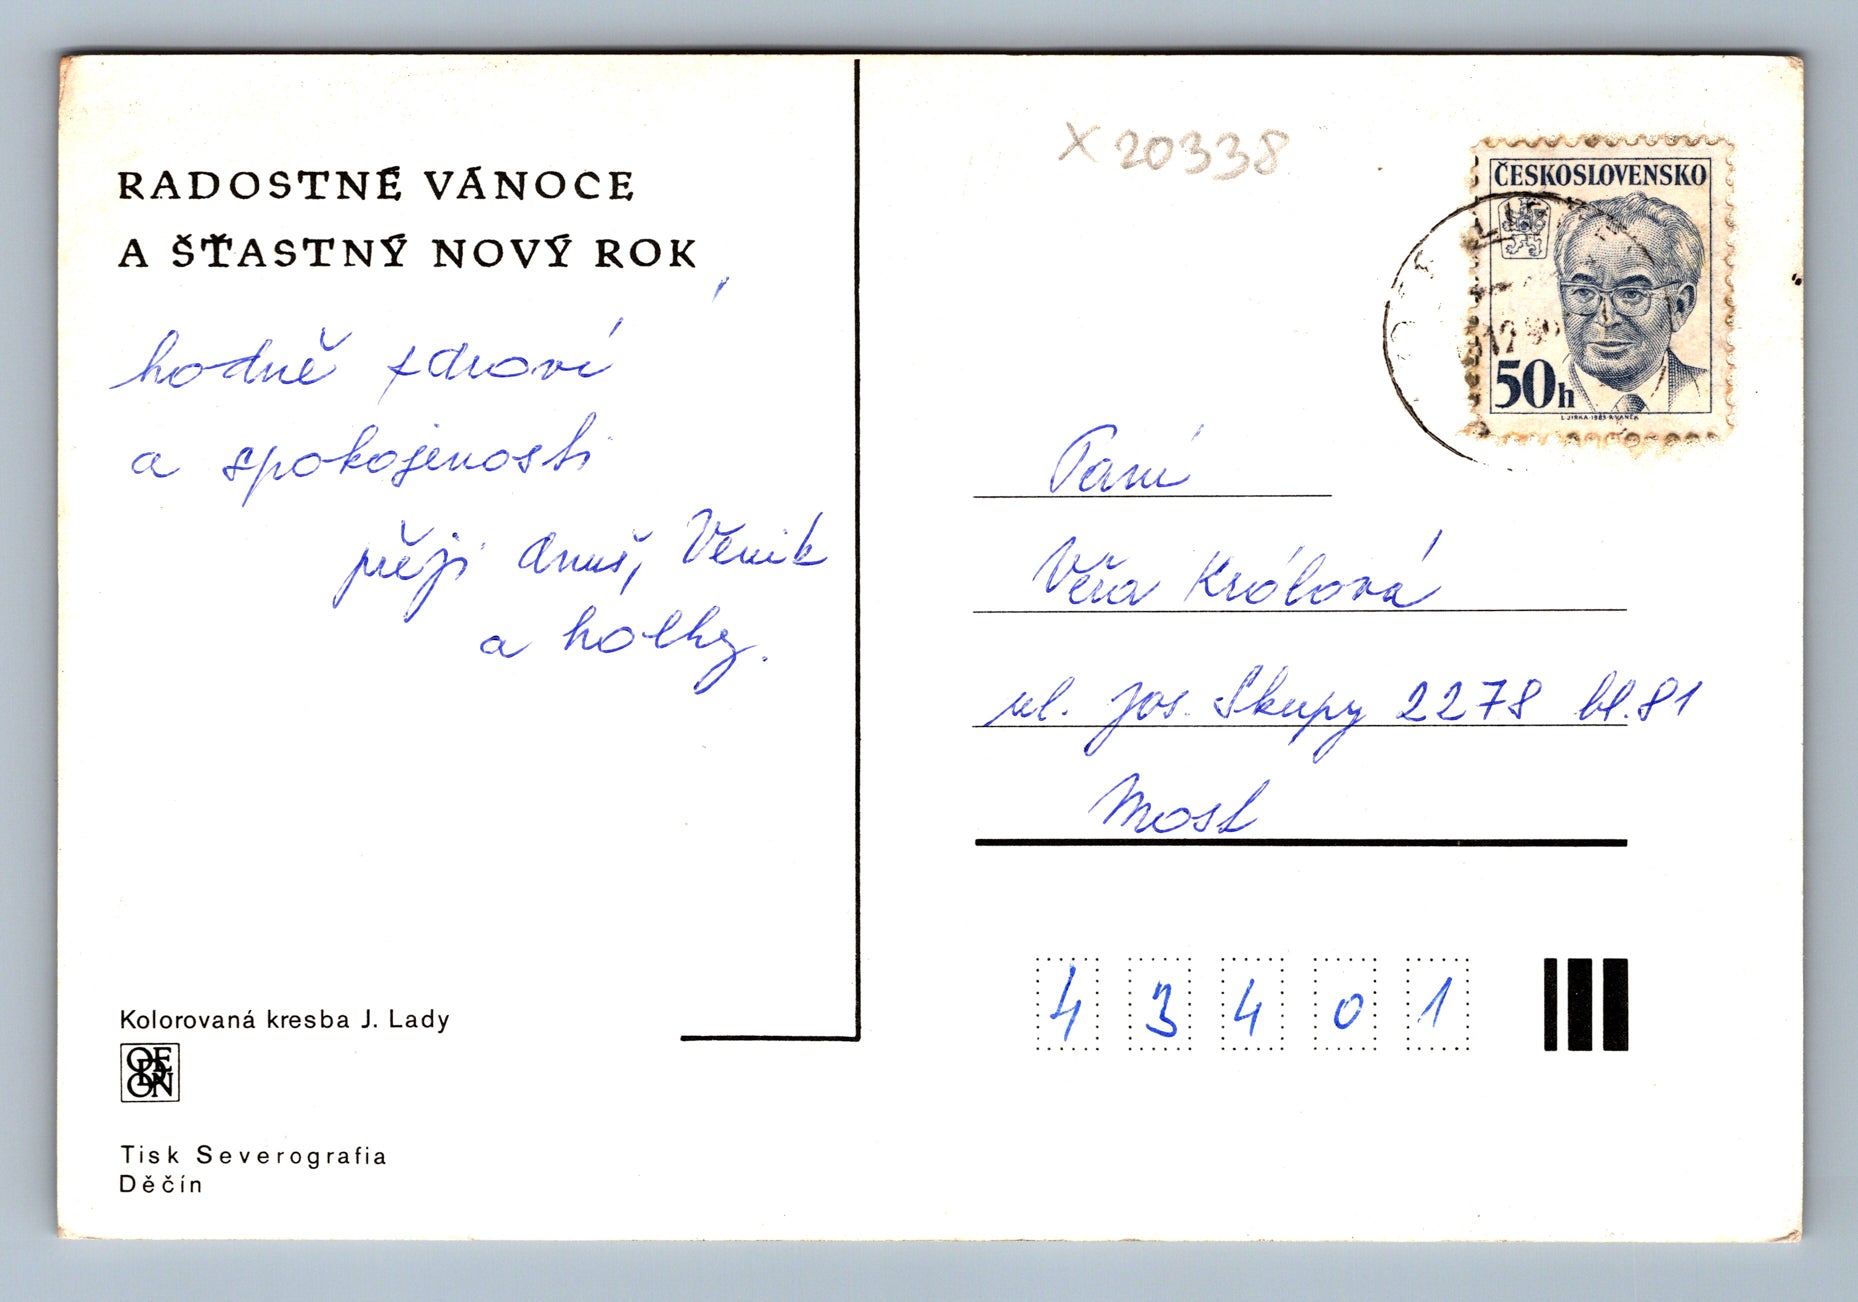 RADOSTNÉ VÁNOCE
A ŠŤASTNÝ NOVÝ ROK,
hodně zdraví
a spokojenosti
přeji Anuš, Věnik
a holky.
Kolorovaná kresba J. Lady
ODEON
Tisk Severografia
Děčín
X 20338
ČESKOSLOVENSKO
50h
Paní
Věra Królová
ul. Jos. Skupy 2278 bl. 81
Most
43401